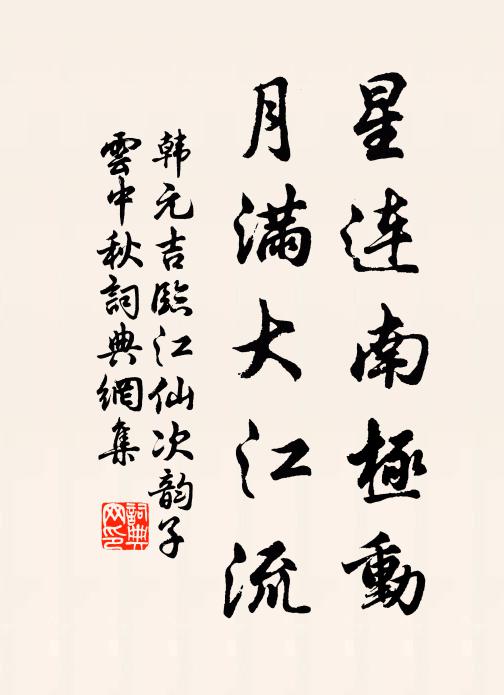 星連南極動
月滿大江流
韩元吉臨江仙次韵子
雲中秋詞典網集
詞典网印